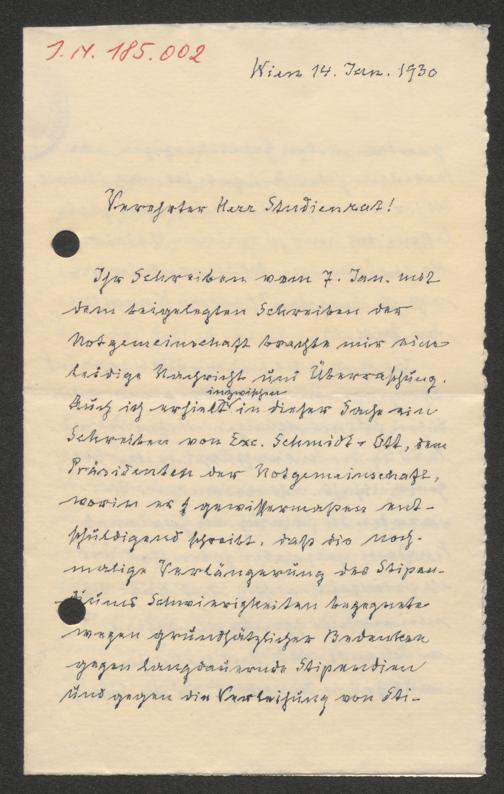 I.N. 185.002
Wien 14. Jan. 1930
Verehrter Herr Studienrat!
Ihr Schreiben vom 7. Jan. mit
dem beigelegten Schreiben der
Notgemeinschaft brachte mir eine
leidige Nachricht und Überraschung.
inzwischen
Auch ich erhielt in dieser Sache ein
Schreiben von Exc. Schmidt-Ott, dem
Präsidenten der Notgemeinschaft,
worin er gewissermaßen ent-
schuldigend schreibt, daß die noch-
malige Verlängerung des Stipen-
diums Schwierigkeiten begegnete
wegen grundsätzlicher Bedenken
gegen langdauernde Stipendien
und gegen die Verleihung von Sti-